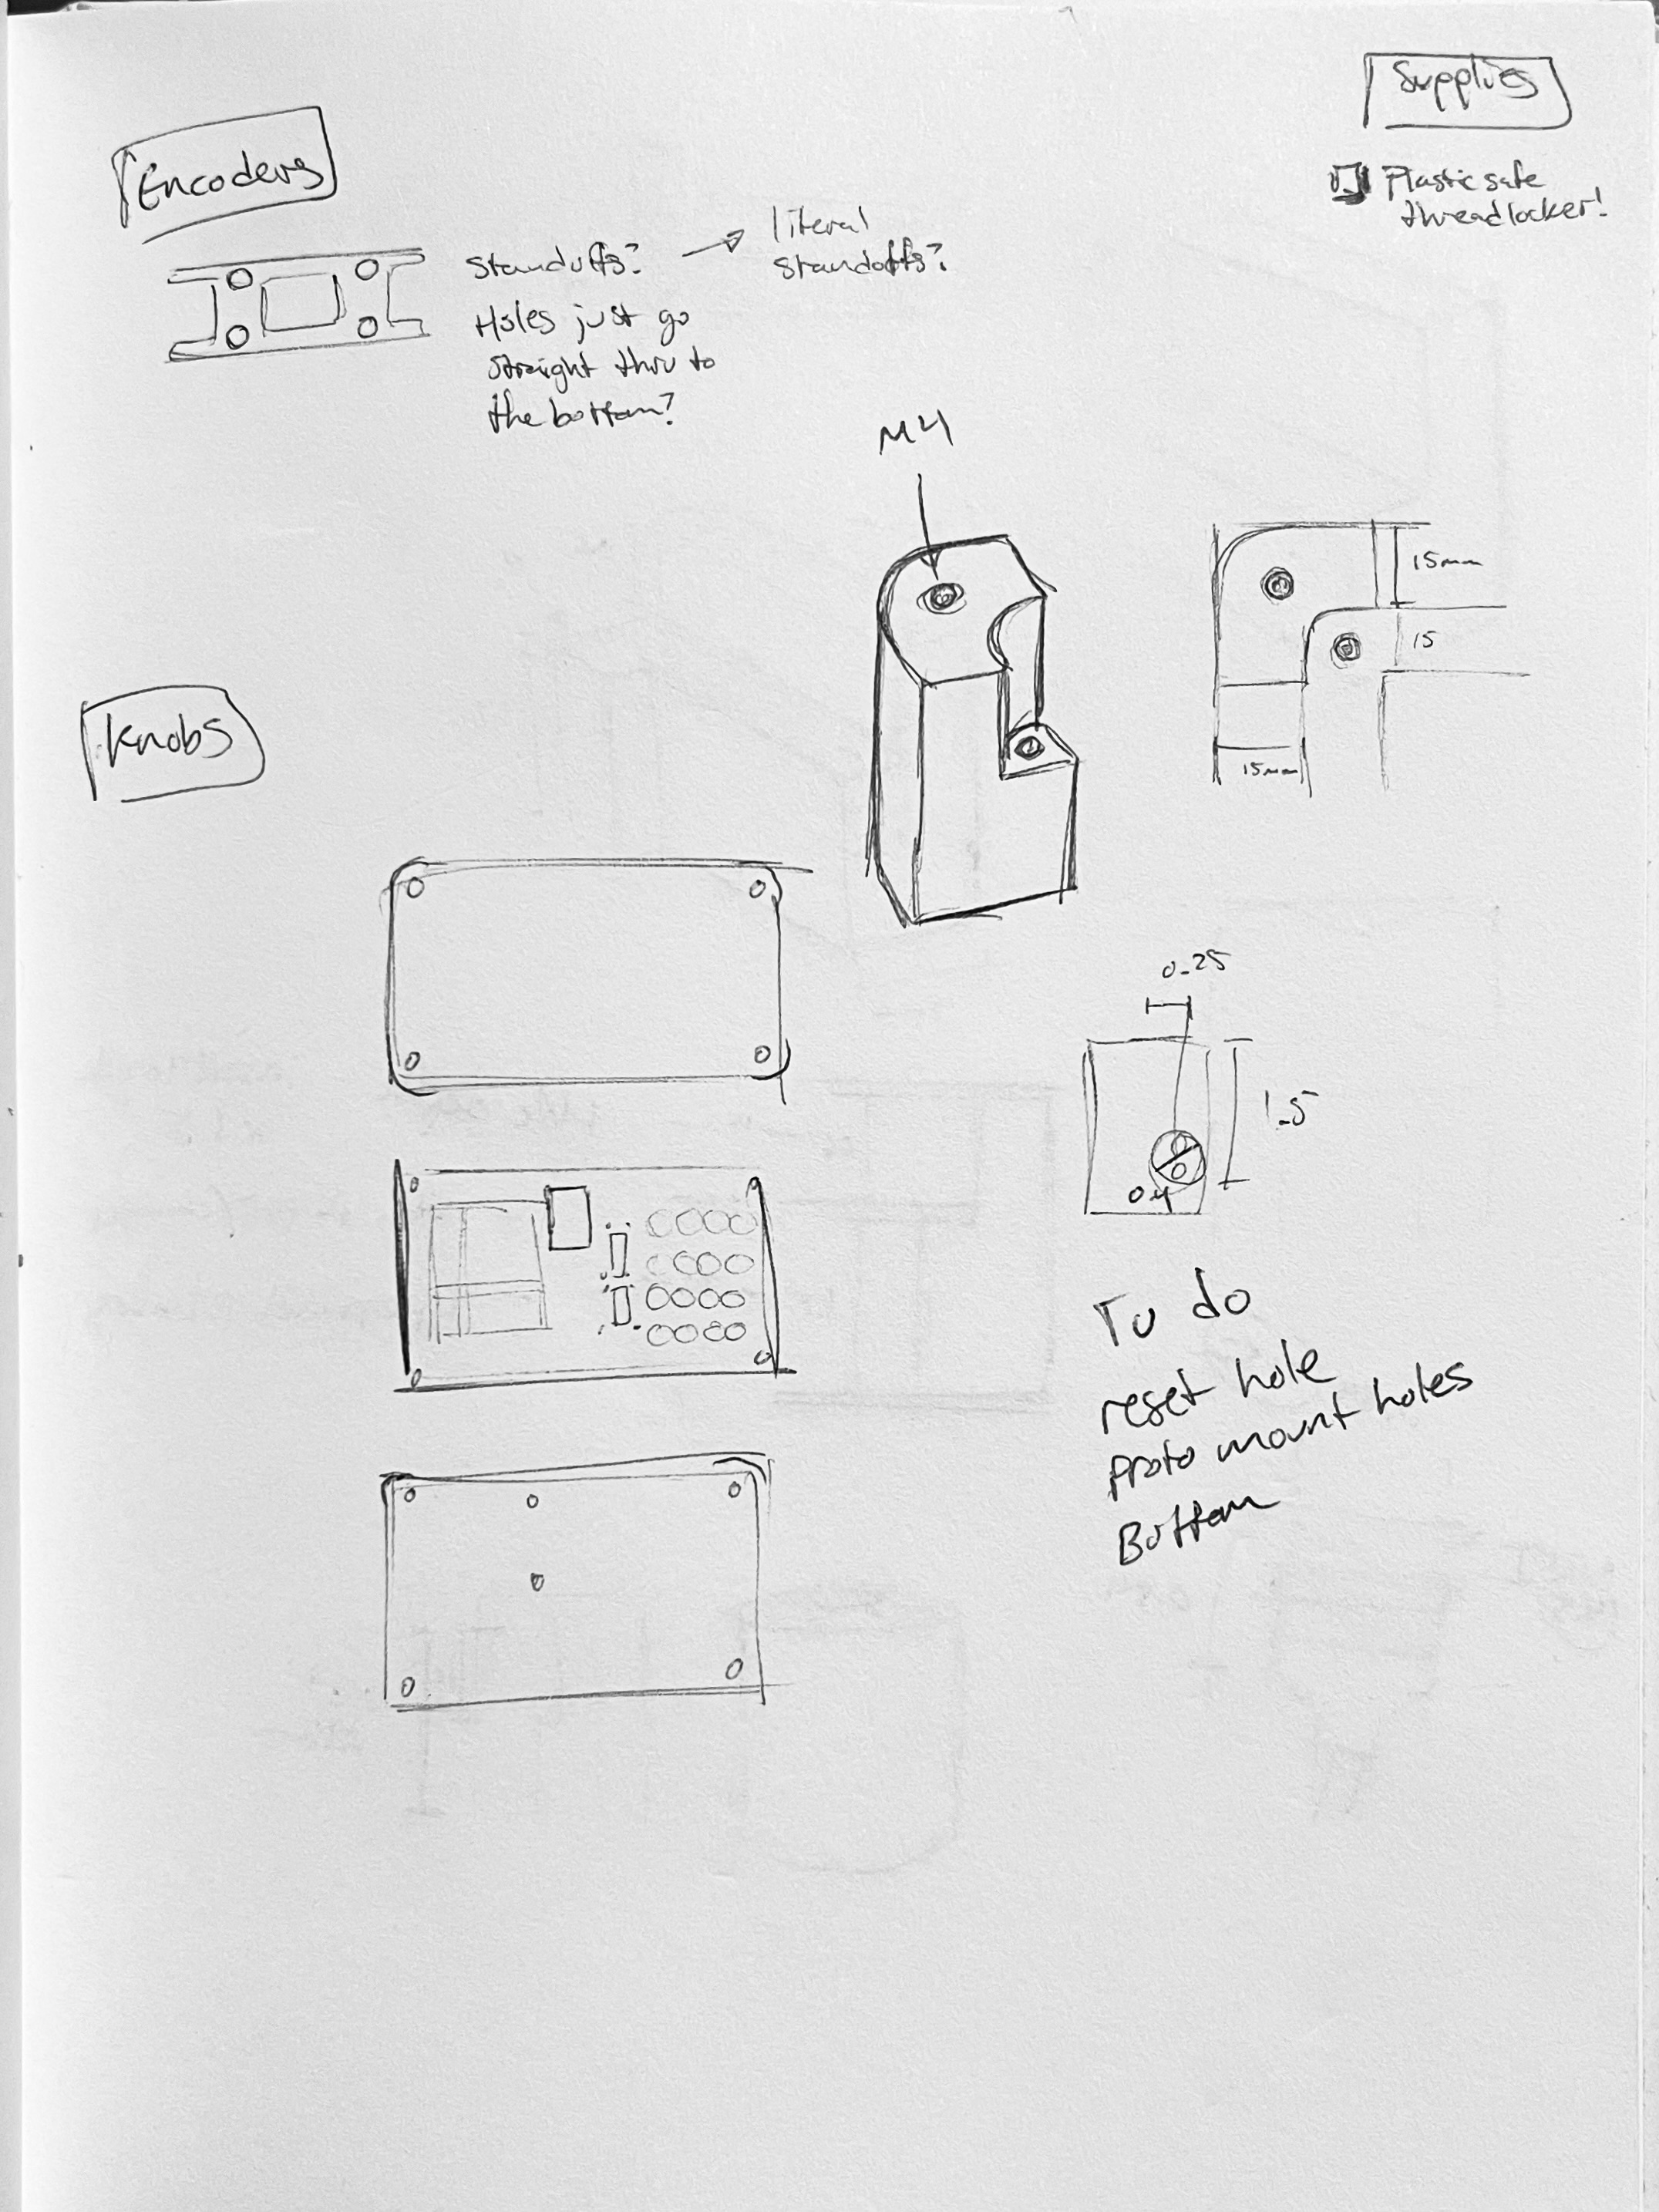 Supplies
Encoders
Plastic safe
threadlocker!
Standoffs? → literal
standoffs?
Holes just go
straight thru to
the bottom?
M4
15mm
15
15mm
Knobs
0.25
1.5
0.4
To do
reset hole
Proto mount holes
Bottom